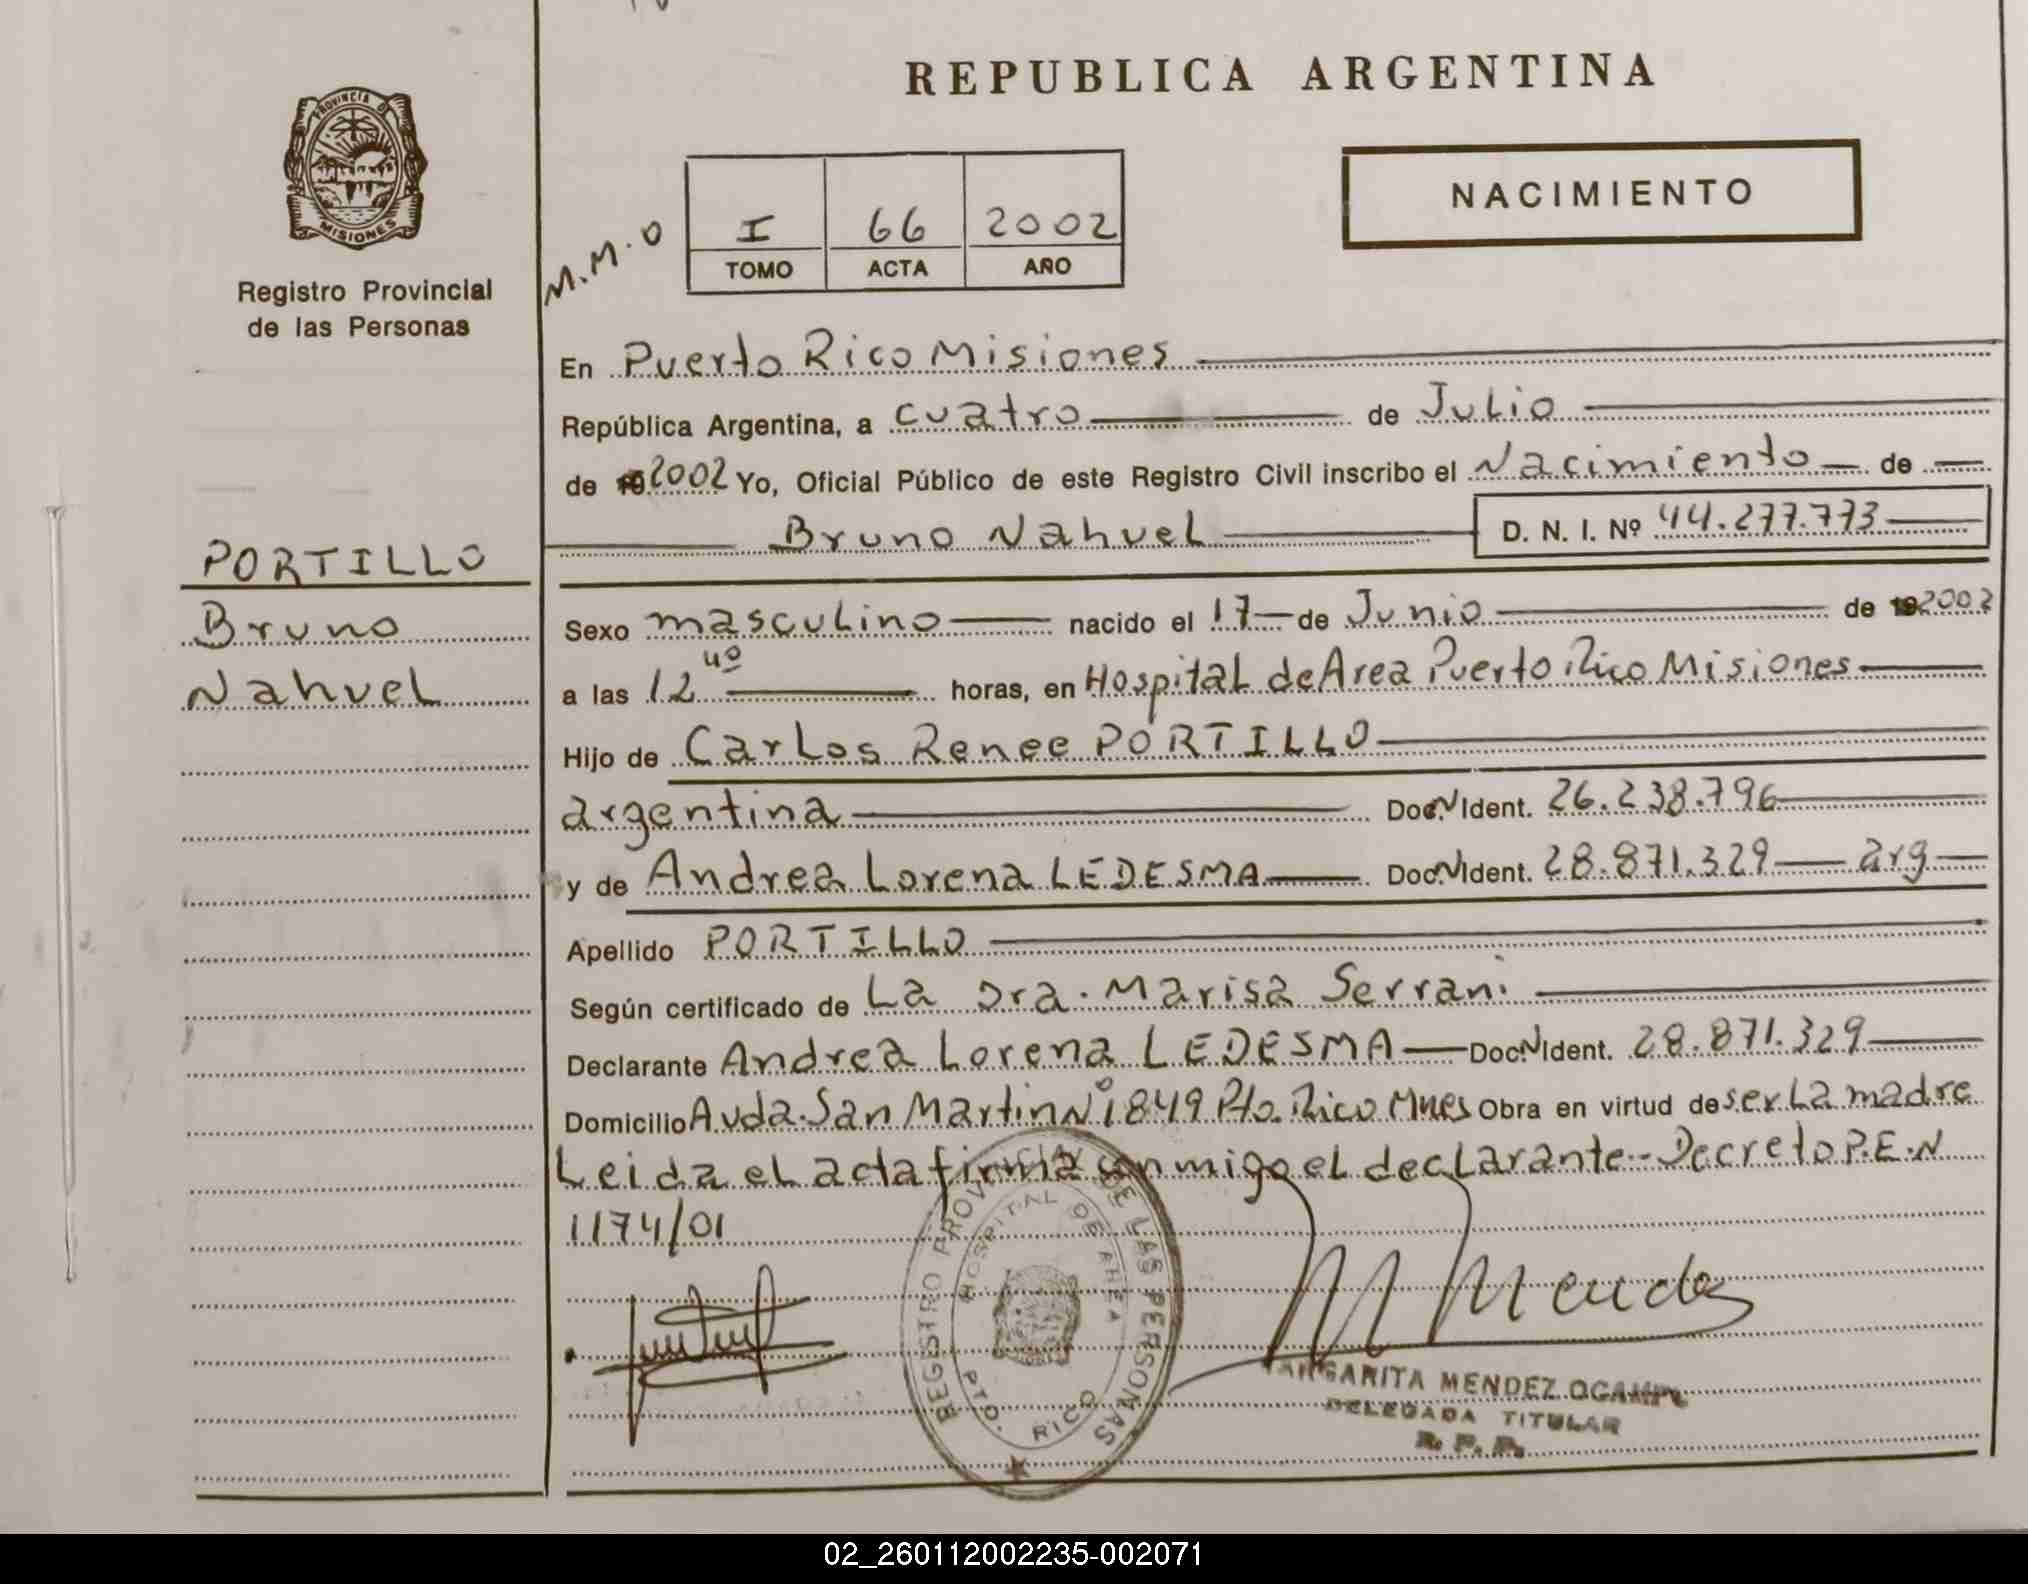 REPUBLICA ARGENTINA
PROVINCIA D
MISIONES
Registro Provincial
de las Personas
M.M.O
I 66 2002
TOMO ACTA AÑO
NACIMIENTO
En Puerto Rico Misiones
República Argentina, a cuatro de Julio
de 192002 Yo, Oficial Público de este Registro Civil inscribo el Nacimiento de
Bruno Nahuel D. N. I. Nº 44.277.773
PORTILLO
Bruno
Nahuel
Sexo masculino nacido el 17 de Junio de 192002
a las 12 40 horas, en Hospital de Area Puerto Rico Misiones
Hijo de Carlos Renee PORTILLO
argentina Doc. N Ident. 26.238.796
y de Andrea Lorena LEDESMA Doc. N Ident. 28.871.329 arg
Apellido PORTILLO
Según certificado de La Dra. Marisa Serrani
Declarante Andrea Lorena LEDESMA Doc. N Ident. 28.871.329
Domicilio Avda. San Martin Nº 1849 Pto. Rico Mnes Obra en virtud de ser La madre
Leida el acta firma conmigo el declarante-- Decreto P.E.N
1174/01
REGISTRO PROVINCIAL DE LAS PERSONAS
HOSPITAL DE AREA
PTO. RICO
M Mendez
MARGARITA MENDEZ OCAMPO
DELEGADA TITULAR
R. P. P.
02_260112002235-002071